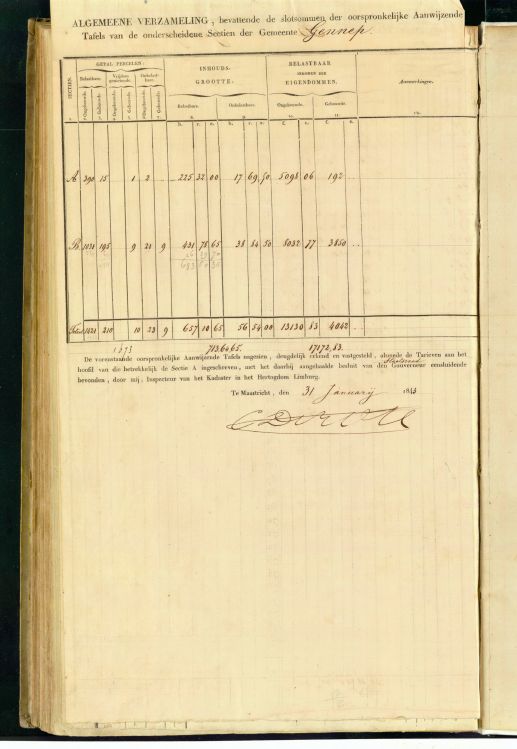 ALGEMEENE VERZAMELING, bevattende de slotsommen der oorspronkelijke Aanwijzende
Tafels van de onderscheidene Sectien der Gemeente Gennep.
SECTIEN.
GETAL PERCELEN:
Belastbare. Vrijdom genietende. Onbelastbare.
Ongebouwde. Gebouwde. Ongebouwde. Gebouwde. Ongebouwde. Gebouwde.
INHOUDS-
GROOTTE.
Belastbare. Onbelastbare.
BELASTBAAR
INKOMEN DER
EIGENDOMMEN.
Ongebouwde. Gebouwde.
Aanmerkingen.
A 390 15 1 2 225 32 00 17 69 50 5098 06 192 ..
B 1031 195 9 21 9 431 78 65 38 84 50 8032 77 3850 ..
Totaal 1421 210 10 23 9 657 10 65 56 54 00 13130 83 4042 ..
1673 713.64.65. 17172,83.
De vorenstaande oorspronkelijke Aanwijzende Tafels nagezien, deugdelijk erkend en vastgesteld, alsmede de Tarieven aan het
hoofd van die betrekkelijk de Sectie A ingeschreven, met het daarbij aangehaalde besluit van den Gouverneur eensluidende
Staatsraad
bevonden, door mij, Inspecteur van het Kadaster in het Hertogdom Limburg.
Te Maastricht, den 31 Januarij 1843